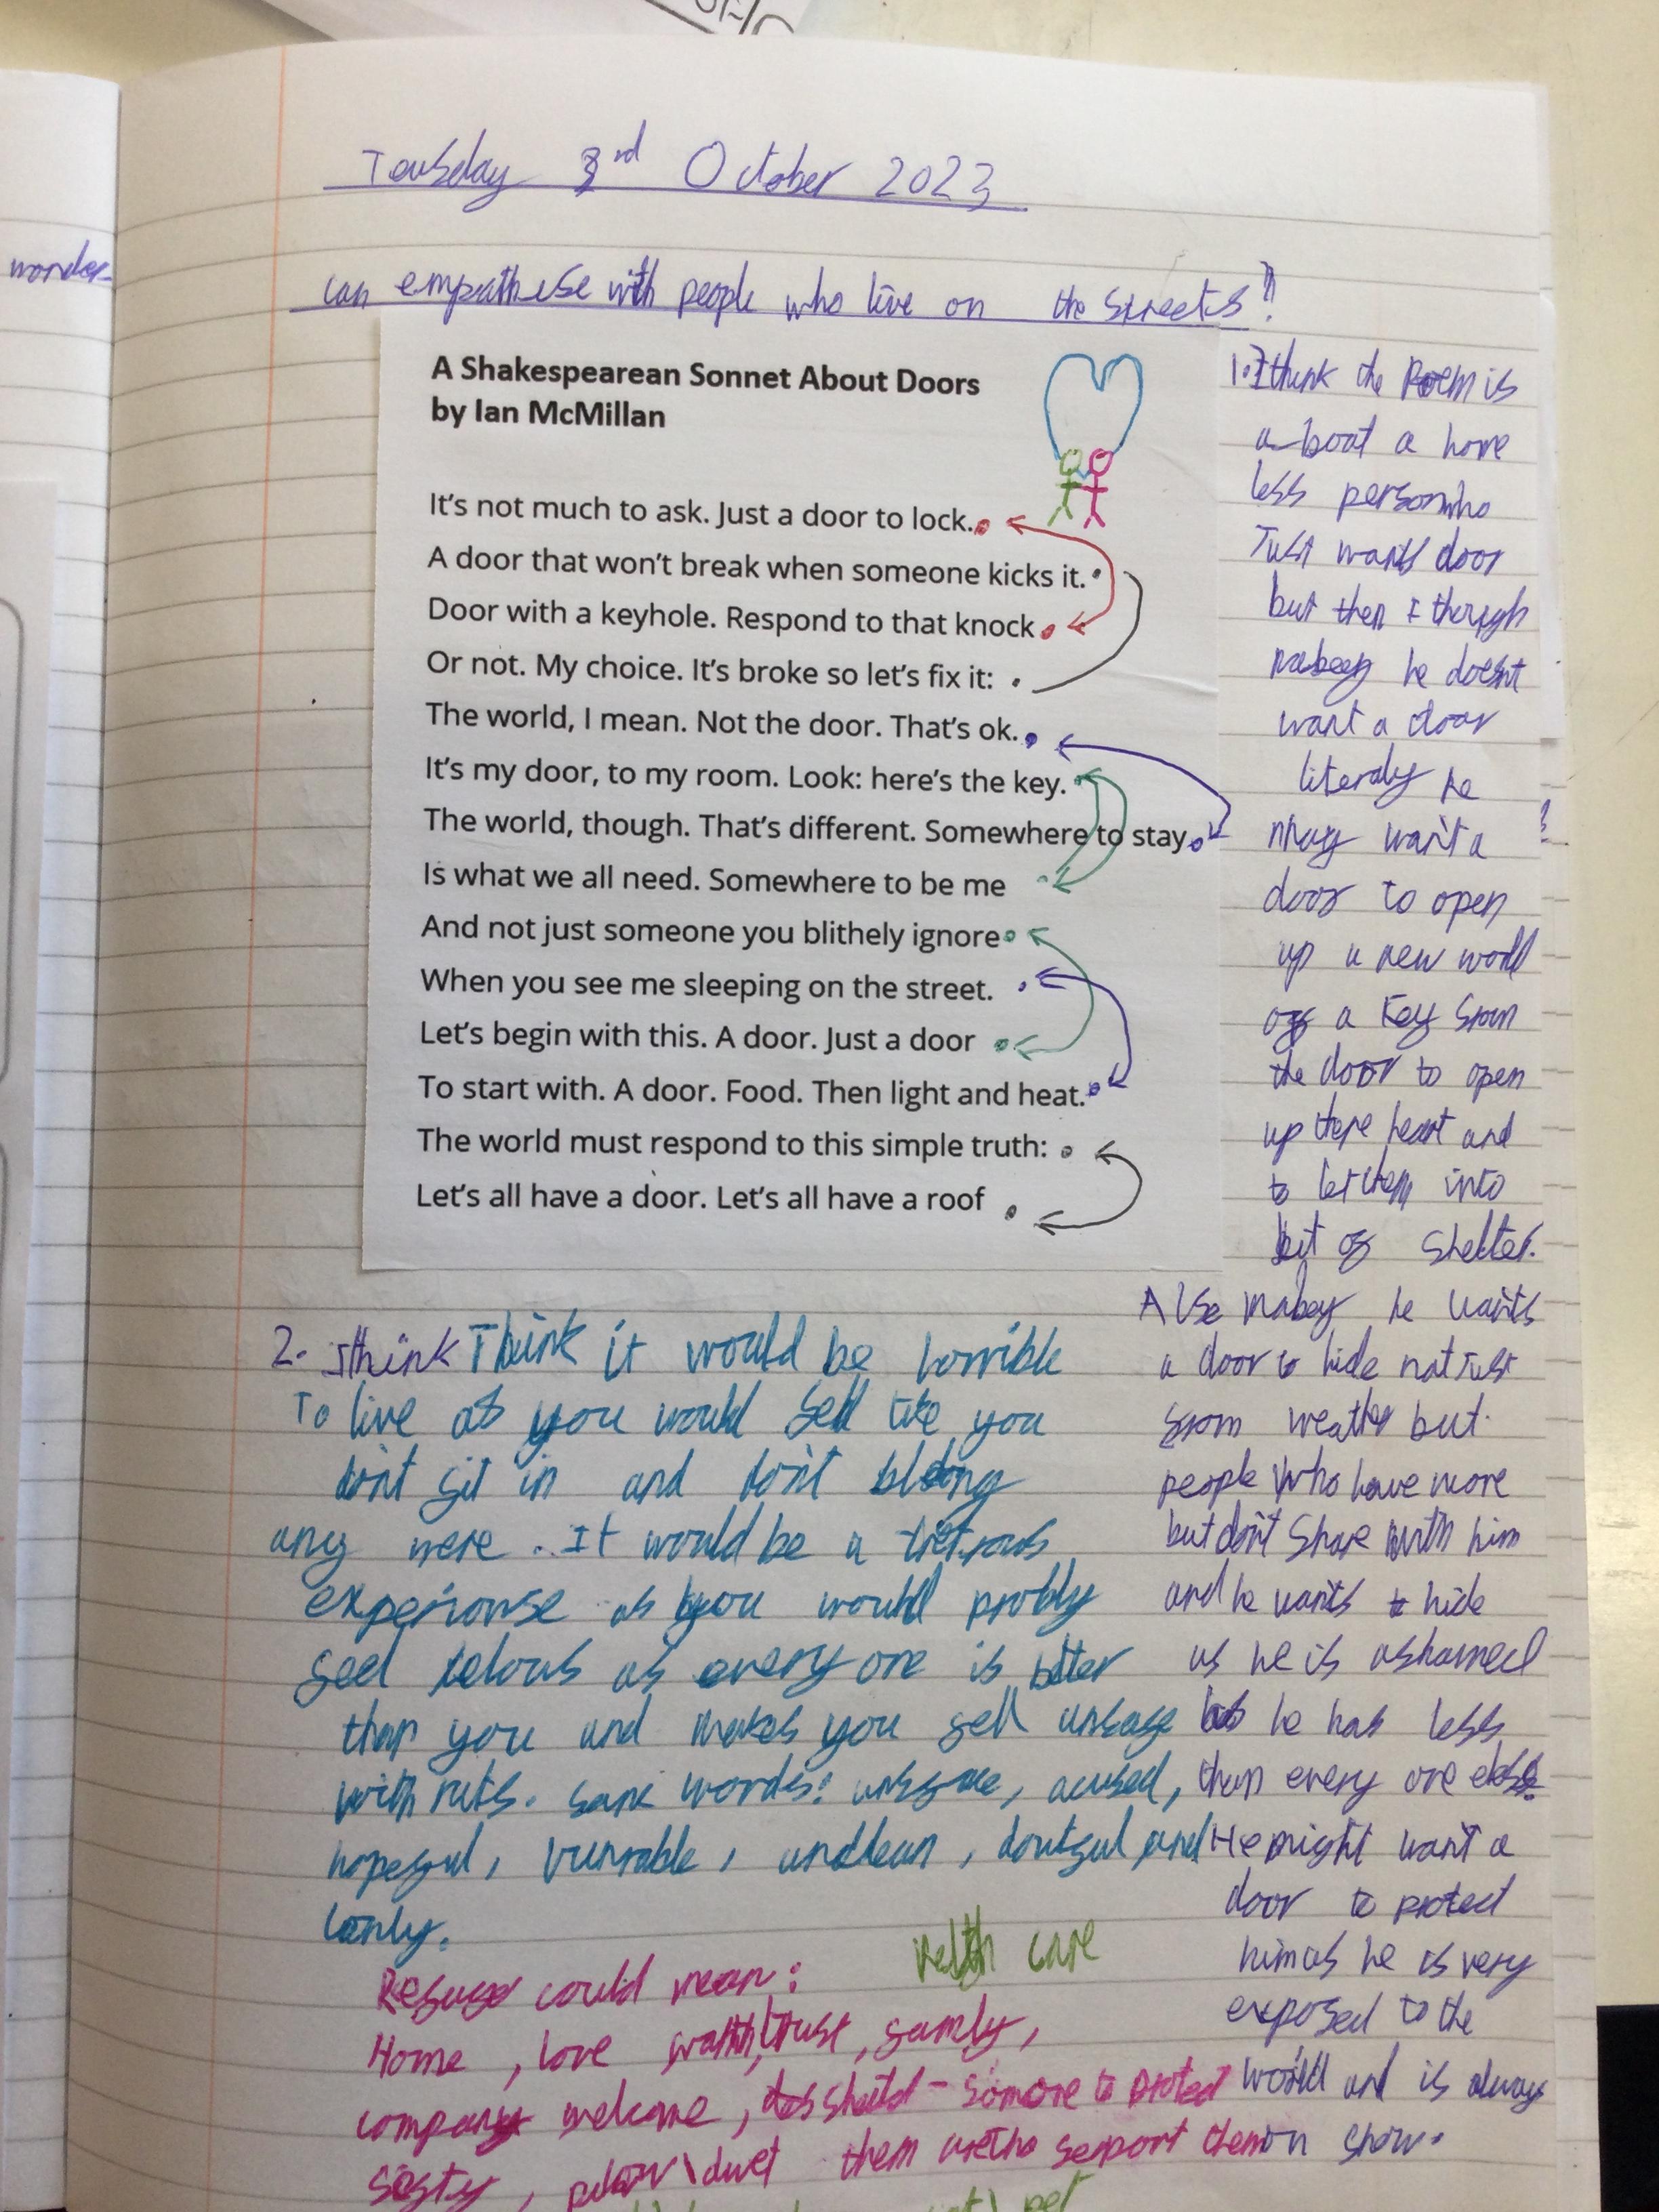 wonder-
Tousday 3rd October 2023
can empathise with people who live on the streets?
A Shakespearean Sonnet About Doors
by Ian McMillan
It's not much to ask. Just a door to lock.
A door that won't break when someone kicks it.
Door with a keyhole. Respond to that knock
Or not. My choice. It's broke so let's fix it:
The world, I mean. Not the door. That's ok.
It's my door, to my room. Look: here's the key.
The world, though. That's different. Somewhere to stay
Is what we all need. Somewhere to be me
And not just someone you blithely ignore
When you see me sleeping on the street.
Let's begin with this. A door. Just a door
To start with. A door. Food. Then light and heat.
The world must respond to this simple truth:
Let's all have a door. Let's all have a roof
1. I think the Poem is
a-boat a home
less person who
Just wants door
but then I though
mabeey he doesnt
want a door
literaly he
may want a
door to open
up a new world
or a key from
the door to open
up there heart and
to let them into
bit of shelter.
Alse mabey he wants
a door to hide not just
from weather but
people who have more
but don't share with him
and he wants to hide
as he is ashamed
as he has less
than every one else.
He might want a
door to protect
him as he is very
exposed to the
world and is always
on show.
2. I think Think it would be horrible
To live as you would fell like you
dont fit in and don't blong
any were. It would be a
experionse as you would probly
feel jelous as every one is better
than you and makes you fell unsafe
with rats. words: unsafe, acused,
hopeful, vunrable, unclean, doutful and
lonly.
Refuge could mean:
helth care
Home, love trust, family,
company welcome, sheild - somone to protect
safty, pillow \ duvet them support them
pet